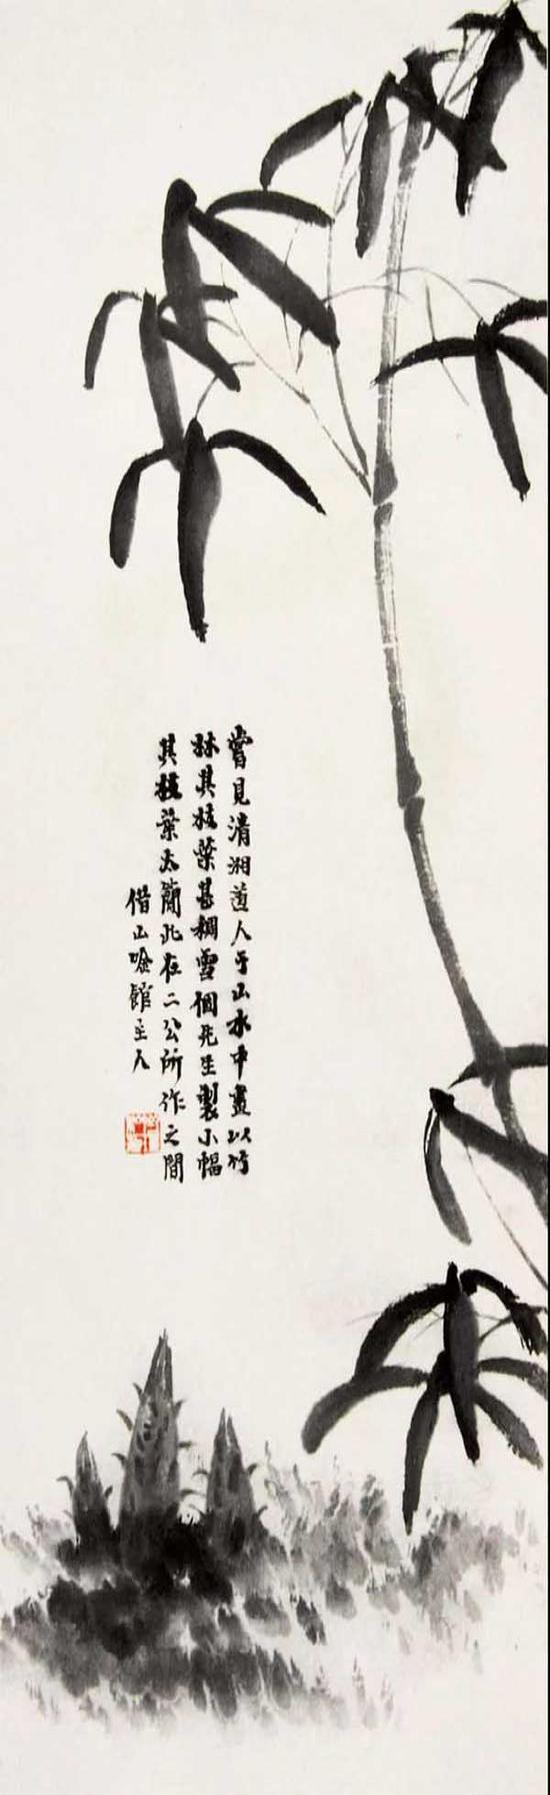 嘗見清湘道人于山水中畫以竹
林其枝葉甚稠雪個先生製小幅
其枝葉太簡此在二公所作之間
借山吟館主人